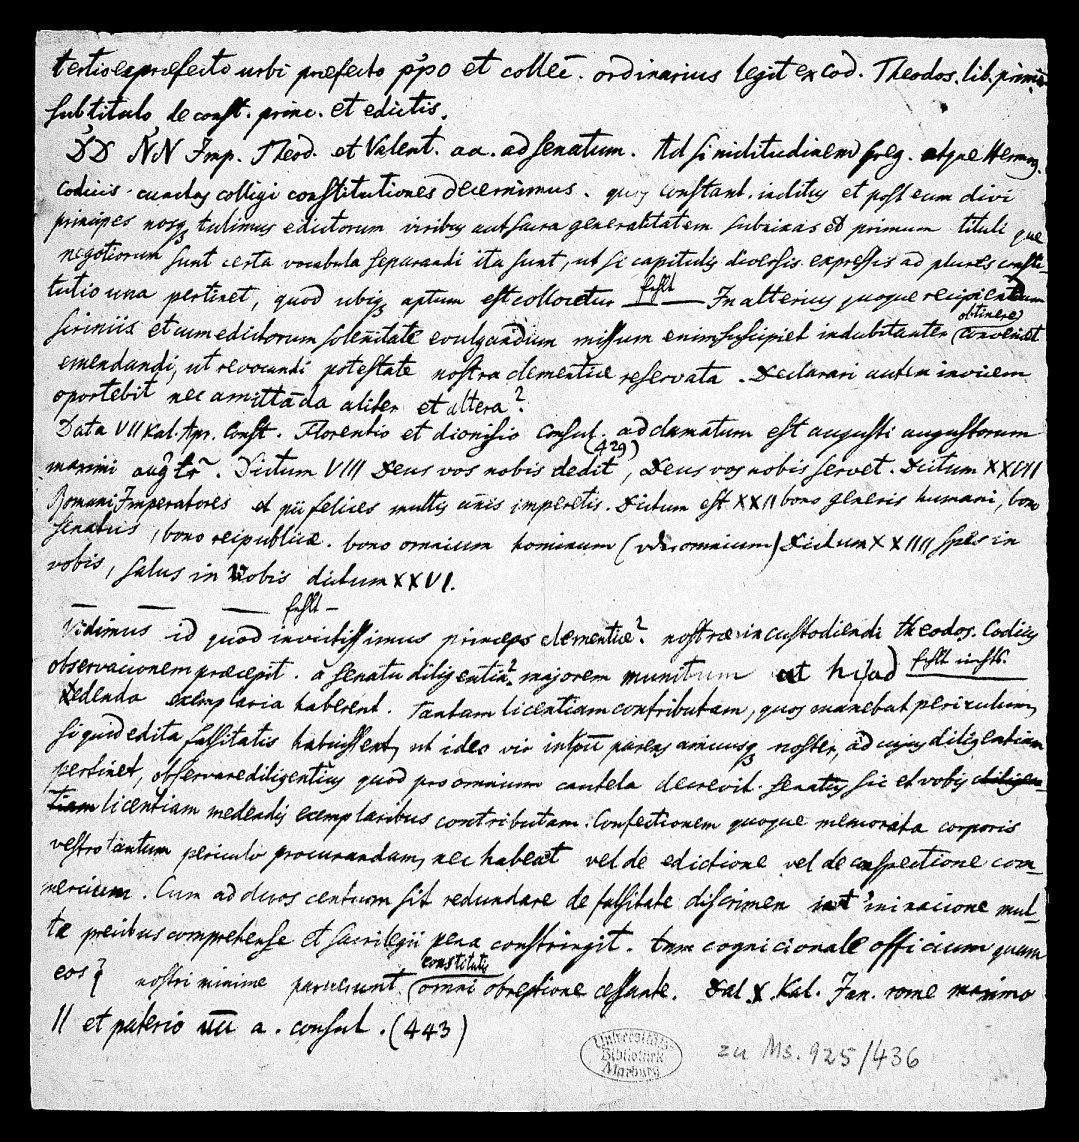 tertio expræfecto urbi præfecto ppo et collec̄. ordinarius legit ex cod. Theodos. lib. primi
sub titulo de const. princ. et edictis.
DD NN Imp. Theod. et Valent. aa. ad senatum. Ad similitudinem greg. atque Hermog.
codicis cunctas colligi constitutiones decernimus. quas Constant. inclitus et post eum divi
principes nosq tulimus edictorum viribus aut sacra generalitatem subnixas et primum tituli que
negotiorum sunt certa vocabula separandi ita sunt, ut si capitulis diversis expressis ad plures consti
tutio una pertinet, quod ubiq aptum est collocetur fehlt — In alterius quoque recipientium
siriniis et cum edictorum solēnitate evulgandum missum enim suscipiet indubitanter (obtinere) convenit
emendandi, ut revocandi potestate nostra clementiæ reservata. Declarari autem invicem
oportebit nec amittāda aliter et altera?
Data VII Kal. Apr. Const. Florentio et dionisio consul. adclamatum est augusti augustorum
(429)
maximi aug. Dictum VIII Deus vos nobis dedit, Deus vos nobis servet. Dictum XXVII
Romani Imperatores et pii felices multis añis imperetis. Dictum est XXII bono generis humani, bono
senatus, bono reipublicæ. bono omnium hominum ( omnium) Dictum XXIIII spes in
vobis, salus in vobis dictum XXVI.
— — — fehlt —
Vidimus id quod invictissimus princeps clementiæ? nostræ in custodiendi theodos. Codicis
observacionem præcepit. a senatu diligentia? majorem munitum ut fehlt
edenda exemplaria haberent. Tantam licentiam contributam, quos manebat periculum,
si quid edita falsitatis habuissent, ut ideo vir parens amicusq noster, ad cujus diligentiam
pertinet, observare diligentius quod pro omnium cautela decrevit senatus sic et vobis diligen-
tiam licentiam medendis exemplaribus contributam. Confectionem quoque memorata corporis
vestro tantum periculo procurandam, nec habeat vel de edictione vel de conspectione com-
mercium. Cum ad duos centum sit redundare de falsitate discrimen mul-
tæ precibus comprehense et sacrilegii pena constringit. tam cognicionale officium quam
eos? nostri minime parverunt (constitutis) omni obreptione cessante. Dat X. Kal. Jan. rome maximo
II et paterio a. consul. (443)
Universitäts-
Bibliothek
Marburg
zu Ms. 925/436